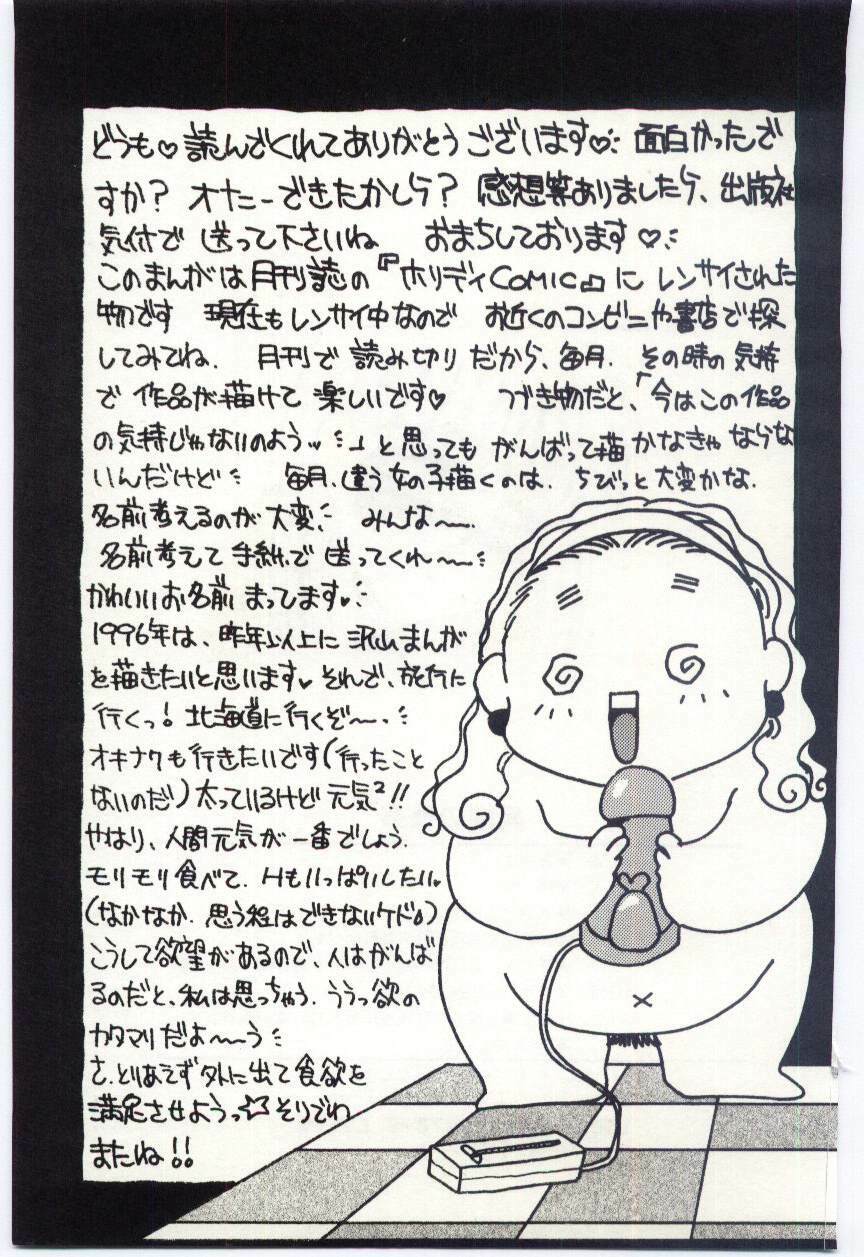 どうも♡読んでくれてありがとうございます♡ 面白かったで
すか? オナニーできたかしら? 感想等ありましたら、出版社
気付で 送って下さいね おまちしております♡
このまんがは月刊誌の『ホリディCOMIC』に レンサイされた
物です 現在もレンサイ中なので お近くのコンビニや書店で探
してみてね. 月刊で 読み切り だから、毎月. その時の 気持
で 作品が描けて 楽しいです♡ つづき物だと、「今はこの作品
の気持じゃないのよう」と思っても がんばって描かなきゃ ならな
いんだけど 毎月、違う女の子描くのは. ちびっと大変かな.
名前考えるのが 大変. みんな〜〜.
名前考えて 手紙で 送ってくれ〜〜
かわいいお名前 まってます♡
1996年は、昨年以上に 沢山まんが
を描きたいと思います♡ それで、旅行に
行くっ! 北海道に行くぞ〜〜.
オキナワも行きたいです(行ったこと
ないのだ)太っているけど 元気²!!
やはり、人間元気が 一番でしょう.
モリモリ食べて. Hもいっぱいしたい♡
(なかなか. 思う程はできないケド)
こうして欲望があるので、人はがんば
るのだと、私は思っちゃう. ううっ欲の
カタマリだよ〜〜う
さ、とりあえず外に出て食欲を
満足させようっ☆ そりでわ
またね!!